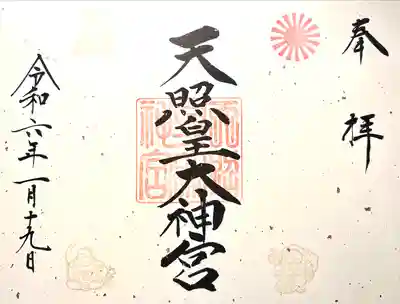 奉拝
天照皇大神宮
令和六年一月十九日